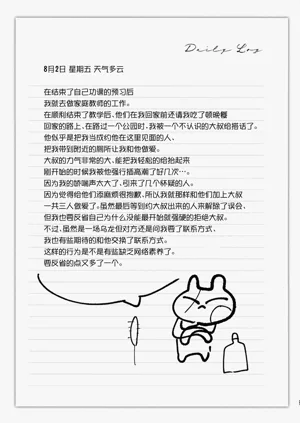 Daily Log
8月2日 星期五 天气多云
在结束了自己功课的预习后
我就去做家庭教师的工作。
在顺利结束了教学后,他们在我回家前还请我吃了顿晚餐
回家的路上,在路过一个公园时,我被一个不认识的大叔给搭话了。
他似乎是把我当成约他在这里见面的人,
把我带到附近的厕所让我和他做爱。
大叔的力气非常的大,能把我轻松的给抱起来
刚开始的时候我被他强行插高潮了好几次…。
因为我的娇喘声太大了,引来了几个怀疑的人。
因为觉得给他们添麻烦很抱歉,所以我就那样和他们加上大叔
一共三人做爱了。虽然最后等到约大叔出来的人来解除了误会,
但我也要反省自己为什么没能最开始就强硬的拒绝大叔。
不过,虽然是一场乌龙但对方还是问我要了联系方式,
我也有些期待的和他交换了联系方式。
这样的行为是不是有些缺乏网络素养了。
要反省的点又多了一个。